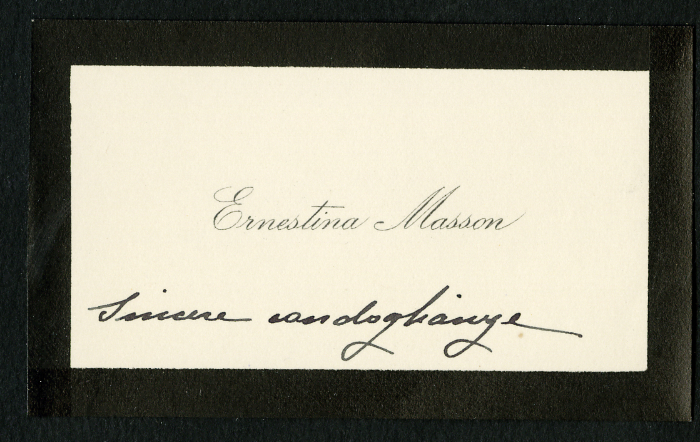 Ernestina Masson
Sincere condoglianze